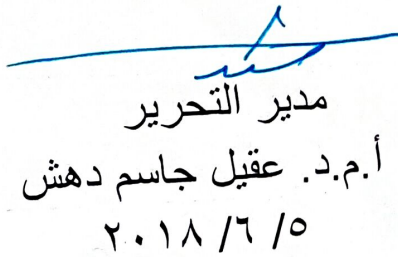 مدير التحرير
أ.م.د. عقيل جاسم دهش
٢٠١٨ /٦ /٥